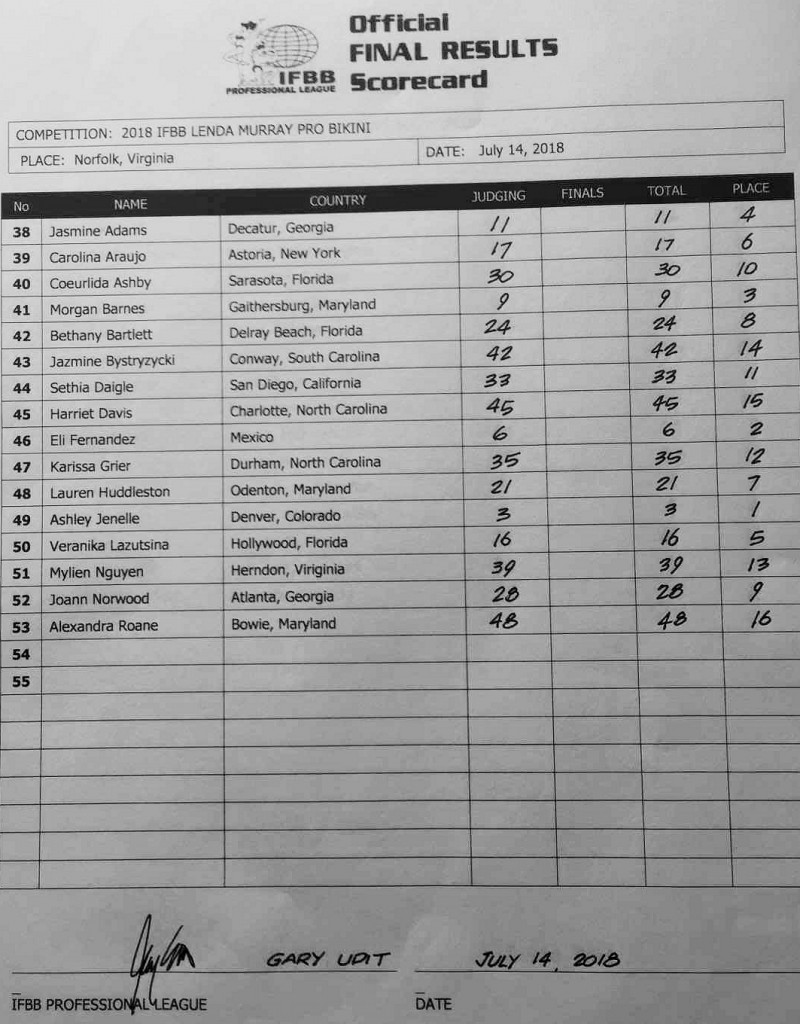 Official
FINAL RESULTS
Scorecard
IFBB
PROFESSIONAL LEAGUE
COMPETITION: 2018 IFBB LENDA MURRAY PRO BIKINI
PLACE: Norfolk, Virginia DATE: July 14, 2018
No NAME COUNTRY JUDGING FINALS TOTAL PLACE
38 Jasmine Adams Decatur, Georgia 11 11 4
39 Carolina Araujo Astoria, New York 17 17 6
40 Coeurlida Ashby Sarasota, Florida 30 30 10
41 Morgan Barnes Gaithersburg, Maryland 9 9 3
42 Bethany Bartlett Delray Beach, Florida 24 24 8
43 Jazmine Bystryzycki Conway, South Carolina 42 42 14
44 Sethia Daigle San Diego, California 33 33 11
45 Harriet Davis Charlotte, North Carolina 45 45 15
46 Eli Fernandez Mexico 6 6 2
47 Karissa Grier Durham, North Carolina 35 35 12
48 Lauren Huddleston Odenton, Maryland 21 21 7
49 Ashley Jenelle Denver, Colorado 3 3 1
50 Veranika Lazutsina Hollywood, Florida 16 16 5
51 Mylien Nguyen Herndon, Viriginia 39 39 13
52 Joann Norwood Atlanta, Georgia 28 28 9
53 Alexandra Roane Bowie, Maryland 48 48 16
54
55
GARY UDIT JULY 14, 2018
IFBB PROFESSIONAL LEAGUE DATE